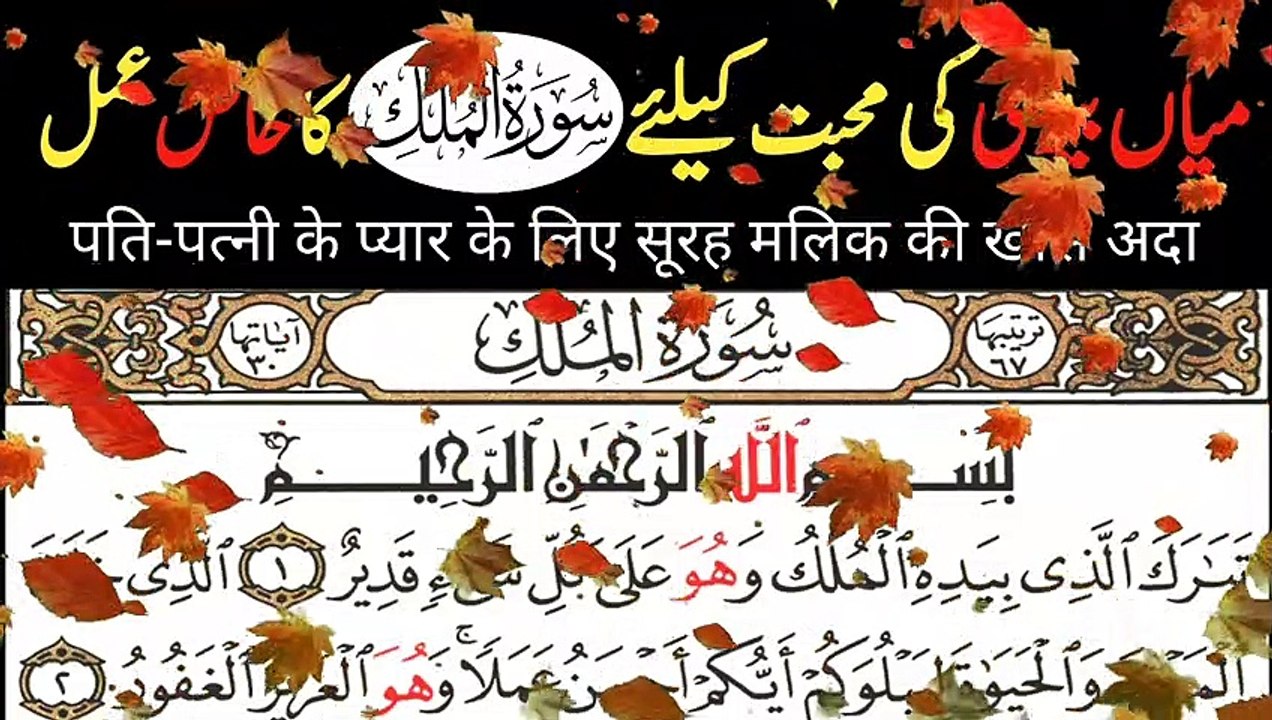 میاں بیوی کی محبت کیلئے سُورَةُ المُلكِ کا خاص عمل
पति-पत्नी के प्यार के लिए सूरह मलिक की खास अदा
ترتيبها ٦٧ سُورَةُ المُلكِ آياتها ٣٠
بِسْمِ ٱللَّهِ ٱلرَّحْمَٰنِ ٱلرَّحِيمِ
تَبَٰرَكَ ٱلَّذِى بِيَدِهِ ٱلْمُلْكُ وَهُوَ عَلَىٰ كُلِّ شَىْءٍ قَدِيرٌ ١ ٱلَّذِى خَلَقَ
ٱلْمَوْتَ وَٱلْحَيَوٰةَ لِيَبْلُوَكُمْ أَيُّكُمْ أَحْسَنُ عَمَلًا ۚ وَهُوَ ٱلْعَزِيزُ ٱلْغَفُورُ ٢